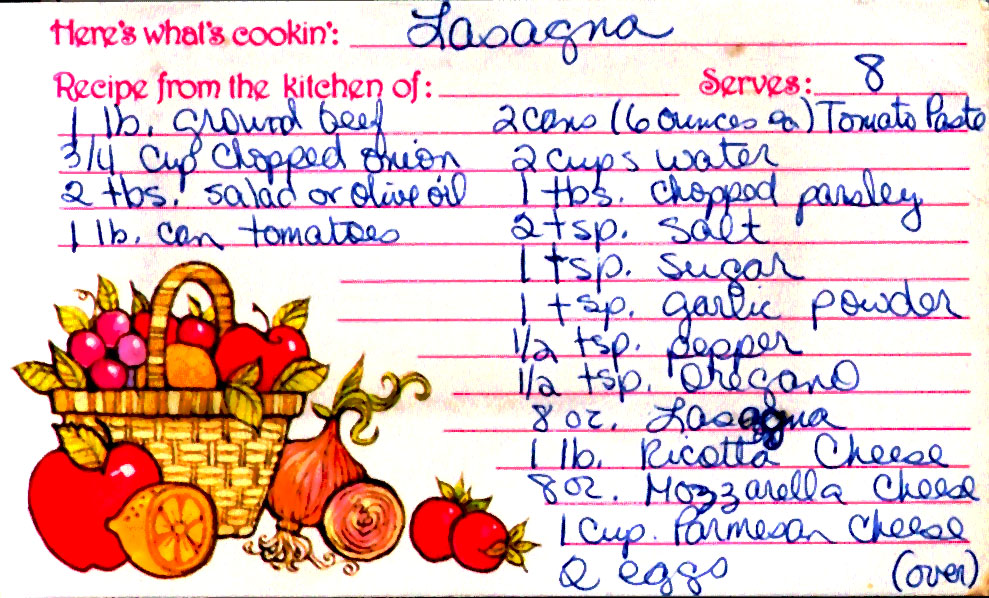 Here's what's cookin': Lasagna
Recipe from the kitchen of: Serves: 8
1 lb. ground beef
3/4 cup chopped onion
2 tbs. salad or olive oil
1 lb. can tomatoes
2 cans (6 ounces ea) Tomato Paste
2 cups water
1 tbs. chopped parsley
2 tsp. salt
1 tsp. sugar
1 tsp. garlic powder
1/2 tsp. pepper
1/2 tsp. oregano
8 oz. Lasagna
1 lb. Ricotta Cheese
8 oz. Mozzarella Cheese
1 Cup Parmesan Cheese
2 eggs (over)